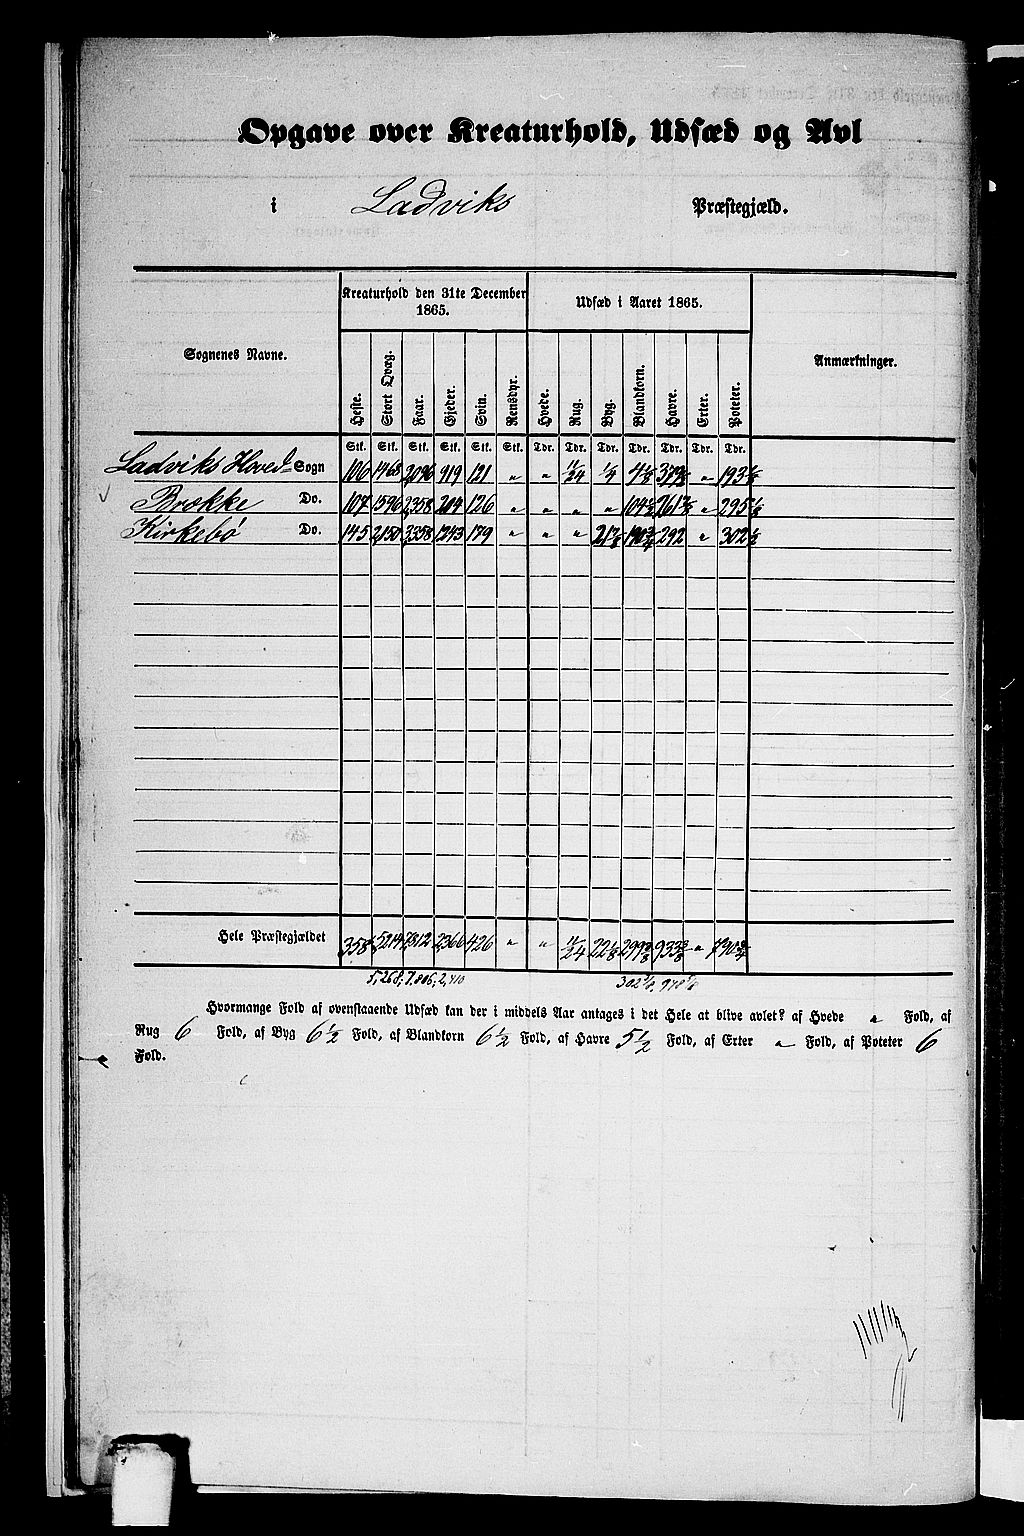 Opgave over Kreaturhold, Udsæd og Avl
i Ladviks Præstegjæld.
Kreaturhold den 31te December 1865. Udsæd i Aaret 1865.
Sognenes Navne. Heste. Stort Qvæg. Faar. Gjeder. Svin. Rensdyr. Hvede. Rug. Byg. Blandkorn. Havre. Erter. Poteter. Anmærkninger.
Stk. Stk. Stk. Stk. Stk. Stk. Tdr. Tdr. Tdr. Tdr. Tdr. Tdr. Tdr.
Ladviks Hoved= Sogn 106 1468 2,096 919 121 " " 11/24 1/4 "
Brække Do. 107 1596 2,358 204 126 " " " " "
Kirkebø Do. 145 2,150 3,358 1243 179 " " " 21 7/8 190 3/4 292 " 302 1/2
Hele Præstegjældet 358 5,214 7,812 2,366 426 " " 11/24 22 1/8 933 3/8 " 790 3/4
5,268; 7,806; 2,410
Hvormange Fold af ovenstaaende Udsæd kan der i middels Aar antages i det Hele at blive avlet? af Hvede " Fold, af
Rug 6 Fold, af Byg 6 1/2 Fold, af Blandkorn 6 1/2 Fold, af Havre 5 1/2 Fold, af Erter " Fold, af Poteter 6
Fold.